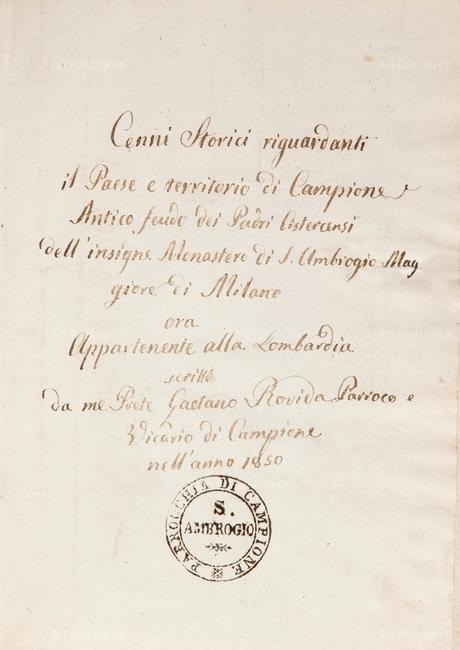 Cenni Storici riguardanti
il Paese e territorio di Campione
Antico feudo dei Padri Cistercensi
dell'insigne Monastero di S. Ambrogio Mag
giore di Milano
ora
Appartenente alla Lombardia
scritti
da me Prete Gaetano Rovida Parroco e
Vicario di Campione
nell'anno 1850
PARROCCHIA DI CAMPIONE
S.
AMBROGIO